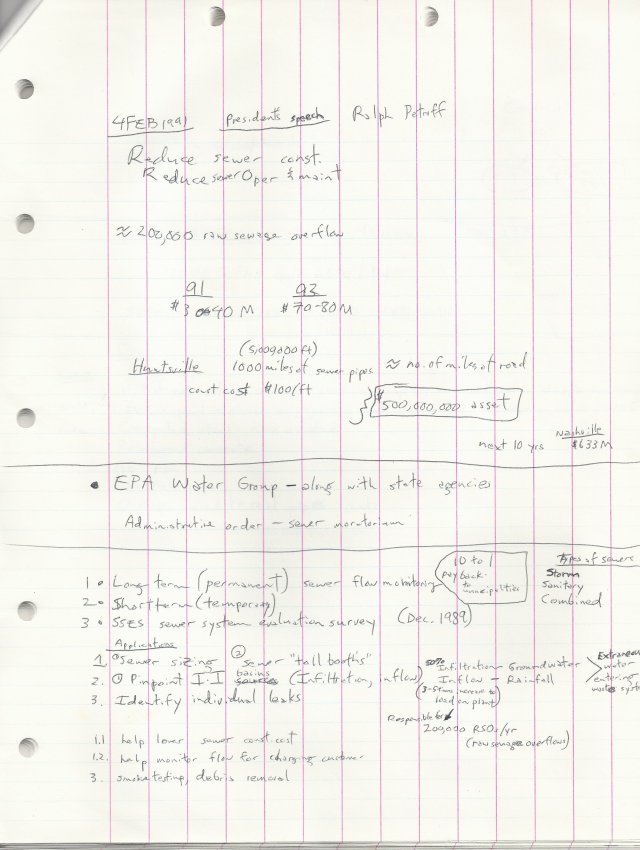 4FEB1991 President's speech Ralph Petroff
Reduce sewer const.
Reduce sewer Oper & maint
≈ 200,000 raw sewage overflow
91 92
$30-40 M $70-80 M
(5,000,000 ft)
Huntsville 1000 miles of sewer pipes ≈ no. of miles of road
const cost $100/ft
$500,000,000 asset
Nashville
next 10 yrs $633 M
• EPA Water Group - along with state agencies
Administrative order - sewer moratorium
10 to 1
payback
to
municipalities
Types of sewers
Storm
Sanitary
Combined
1 • Long term (permanent) sewer flow monitoring
2 • Short term (temporary)
3 • SSES sewer system evaluation survey (Dec. 1989)
Applications
1 ① sewer sizing ② sewer "toll booths"
2. ① Pinpoint I.I basins (Infiltration, inflow)
3. Identify individual leaks
50% Infiltration - Groundwater
Inflow - Rainfall
(3-5 times increase to
load on plant)
Extraneous
water
entering
waste system
Responsible for
200,000 RSOs/yr
(raw sewage overflows)
1.1 help lower sewer const. cost
1.2. help monitor flow for charging customer
3. smoke testing, debris removal